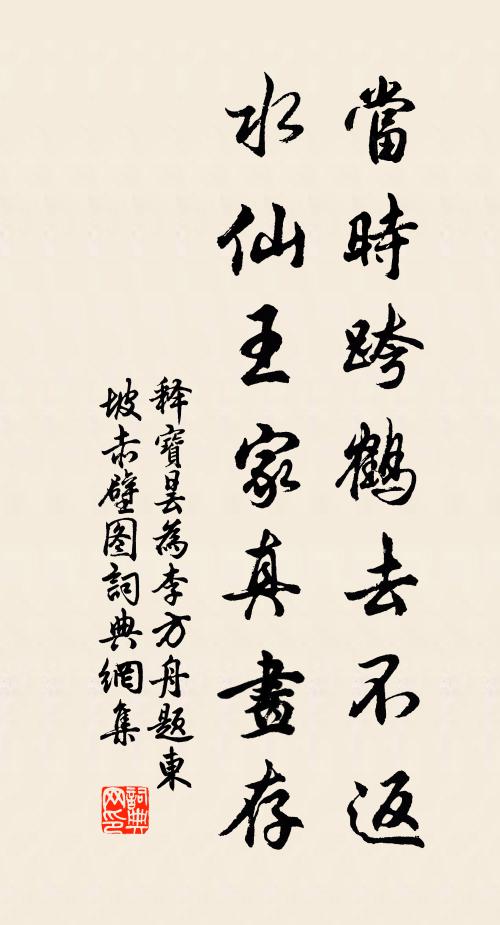 當時跨鶴去不返
水仙王家真畫存
释寶曇為李方舟題東
坡赤壁图詞典網集
詞典
网印